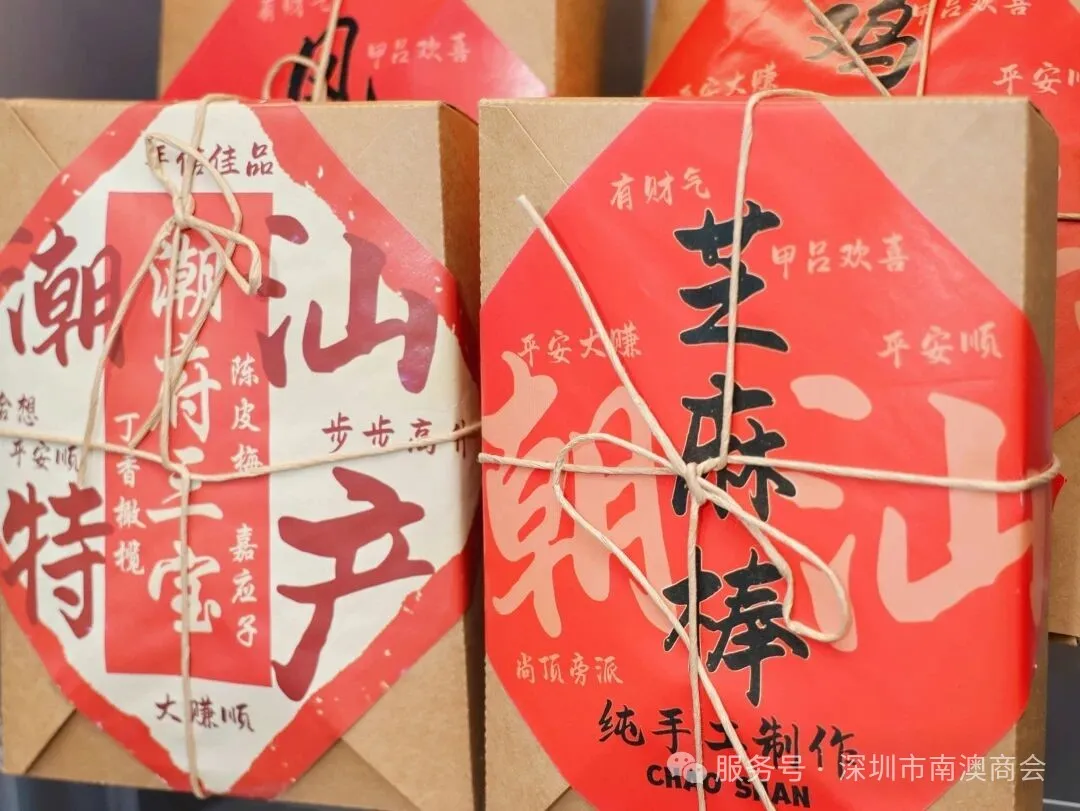 有财气
甲吕欢喜
凤
鸡
甲吕欢喜
平安大赚
平安顺
年佰佳品
潮汕
特产
潮府三宝
陈皮梅
嘉应子
丁香橄榄
步步高升
平安顺
大赚顺
有财气
芝麻棒
甲吕欢喜
平安大赚
平安顺
潮汕
尚顶旁派
纯手工制作
CHAO SHAN
服务号·深圳市南澳商会